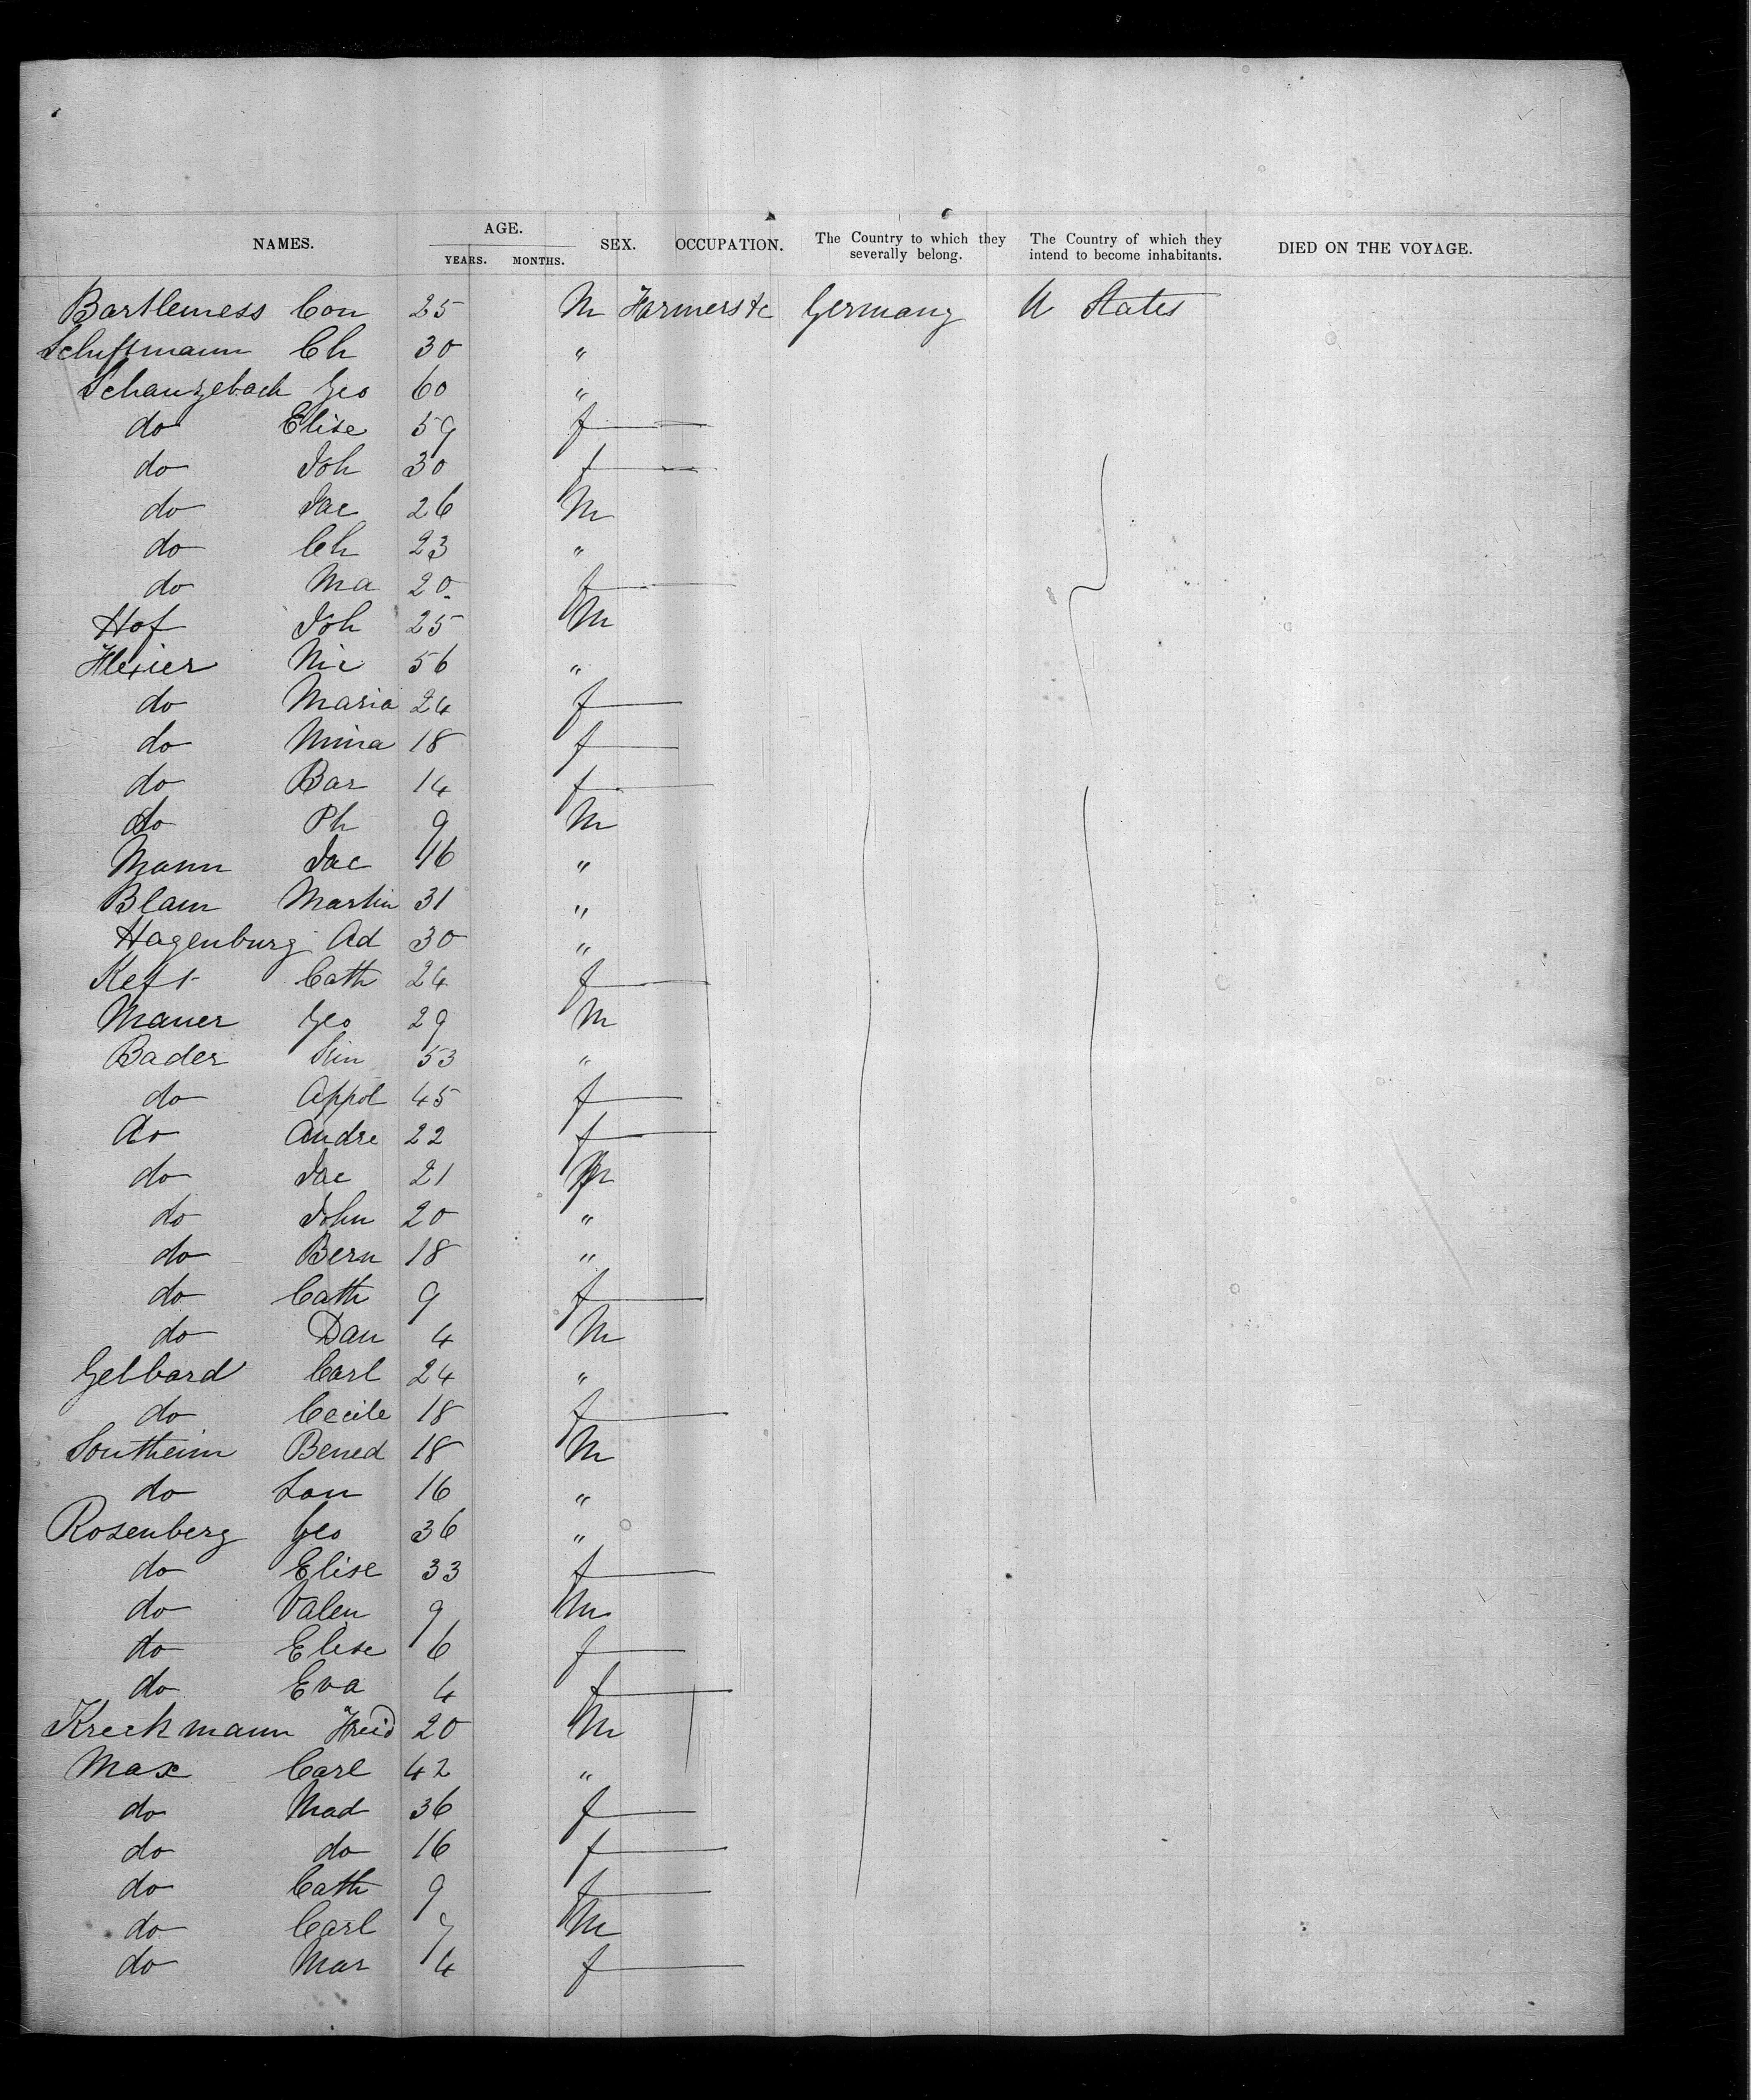 NAMES. AGE. YEARS. MONTHS. SEX. OCCUPATION. The Country to which they severally belong. The Country of which they intend to become inhabitants. DIED ON THE VOYAGE.
Bartlemess Con 25 M Farmers &c Germany U States
Schuffmann Ch 30 "
Schanzebach Geo 60 "
do Elise 59 f
do Joh 30 f
do Jac 26 M
do Ch 23 "
do Ma 20 f
Hof Joh 25 M
Nic 56 "
do Maria 24 f
do Mina 18 f
do Bar 14 f
do Ph 9 M
Mann Jac 46 "
Blam Martin 31 "
Hagenburg Ad 30 "
Keft Cath 24 f
Mauer Geo 29 M
Bader Sim 53 "
do Appol 45 f
do Andre 22 f
do Jac 21 M
do John 20 "
do Bern 18 "
do Cath 9 f
do Dan 4 M
Gebbard Carl 24 "
do Cecile 18 f
Sontheim Bened 18 M
do Lou 16 "
Rosenberg Geo 36 "
do Elise 33 f
do Valen 9 M
do Elise 6 f
do Eva 4 f
Kreckmann Freid 20 M
Max Carl 42 "
do Mad 36 f
do do 16 f
do Cath 9 f
do Carl 7 M
do Mar 4 f